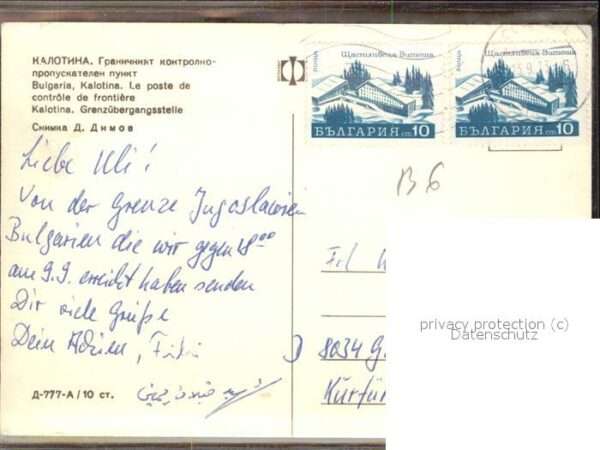 КАЛОТИНА. Граничният контролно-
пропускателен пункт
Bulgaria, Kalotina. Le poste de
contrôle de frontière
Kalotina. Grenzübergangsstelle
Снимка Д. Димов
Поща Щастливеца Витоша
БЪЛГАРИЯ ст 10
Поща Щастливеца Витоша
БЪЛГАРИЯ ст 10
B 6
Liebe Uli!
Von der Grenze Jugoslawien
Bulgarien die wir gegen 18⁰⁰
am 9.9. erreicht haben senden
Dir viele Grüße
Dein Adrien,
Д-777-А/10 ст.
8034 G
Kurfür
privacy protection (c)
Datenschutz